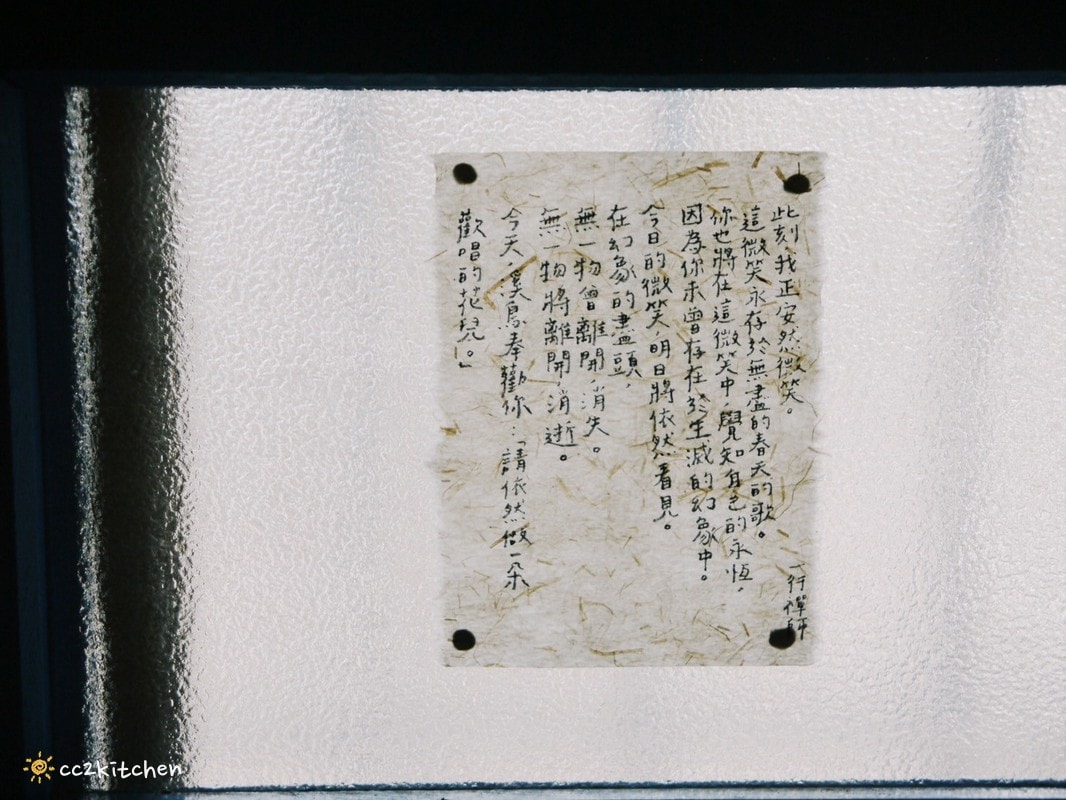 此刻，我正安然微笑。
這微笑永存於無盡的春天的歌。
你也將在這微笑中，覺知自己的永恆，
因為你未曾存在於生滅的幻象中。
今日的微笑，明日將依然看見。
在幻象的盡頭，
無一物曾離開，消失。
無一物將離開，消逝。
今天，溪鳥奉勸你：「請依然做一朵
歡唱的花兒。」
一行禪師
cc2kitchen